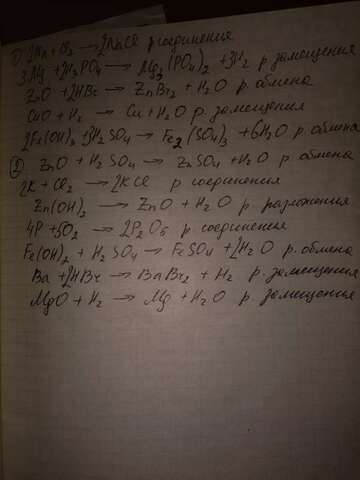 1) 2Na + Cl2 → 2NaCl р соединения
3Mg + 2H3PO4 → Mg3(PO4)2 + 3H2 р замещения
ZnO + 2HBr → ZnBr2 + H2O р. обмена
CuO + H2 → Cu + H2O р. замещения
2Fe(OH)3 + 3H2SO4 → Fe2(SO4)3 + 6H2O р. обмена
2) ZnO + H2SO4 → ZnSO4 + H2O р. обмена
2K + Cl2 → 2KCl р соединения
Zn(OH)2 → ZnO + H2O р разложения
4P + 5O2 → 2P2O5 р соединения
Fe(OH)2 + H2SO4 → FeSO4 + 2H2O р. обмена
Ba + 2HBr → BaBr2 + H2 р. замещения
MgO + H2 → Mg + H2O р. замещения